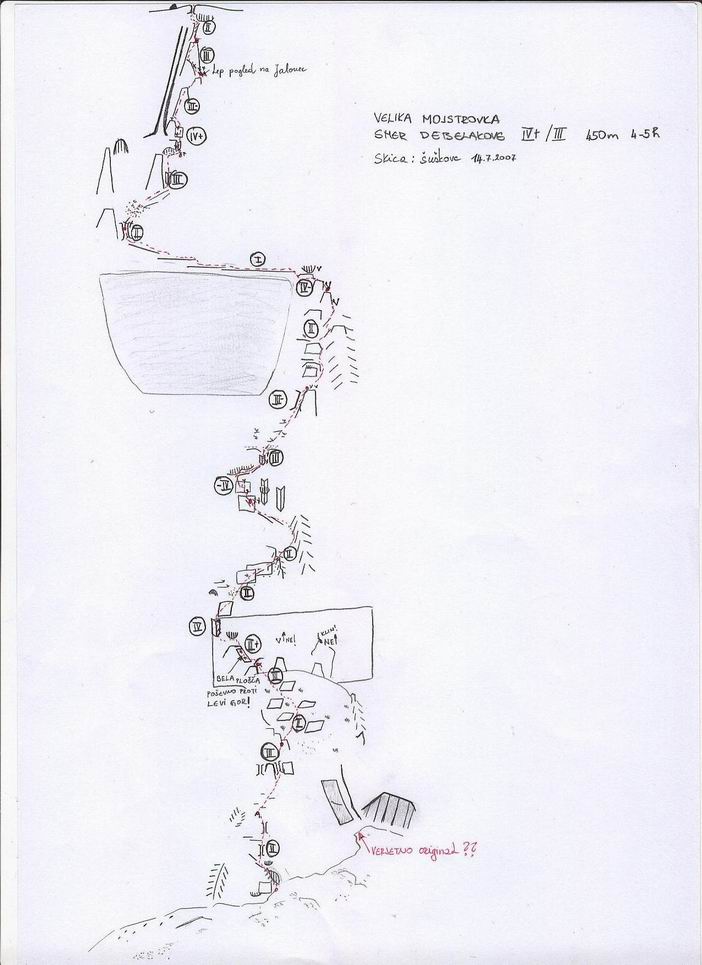 II
III
Lep pogled na Jalovec
III-
IV+
III
II
I
IV-
II
III-
III
-IV
II
II
IV
II+
V NE!
KLIN!
NE!
BELA PLOŠČA
POŠEVNO PROTI
LEVI GOR!
III
I
III
II
VERJETNO original ??
VELIKA MOJSTROVKA
SMER DEBELAKOVE IV+/III 450m 4-5h
Skica: šuškove 14.7.2007